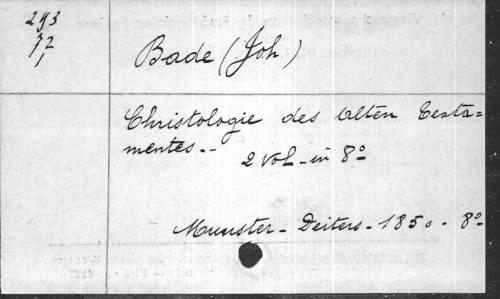 293
72
1
Bade (Joh)
Christologie des Alten Testa=
mentes..
2 Vol - in 8º
Munster - Deiters - 1850 - 8º